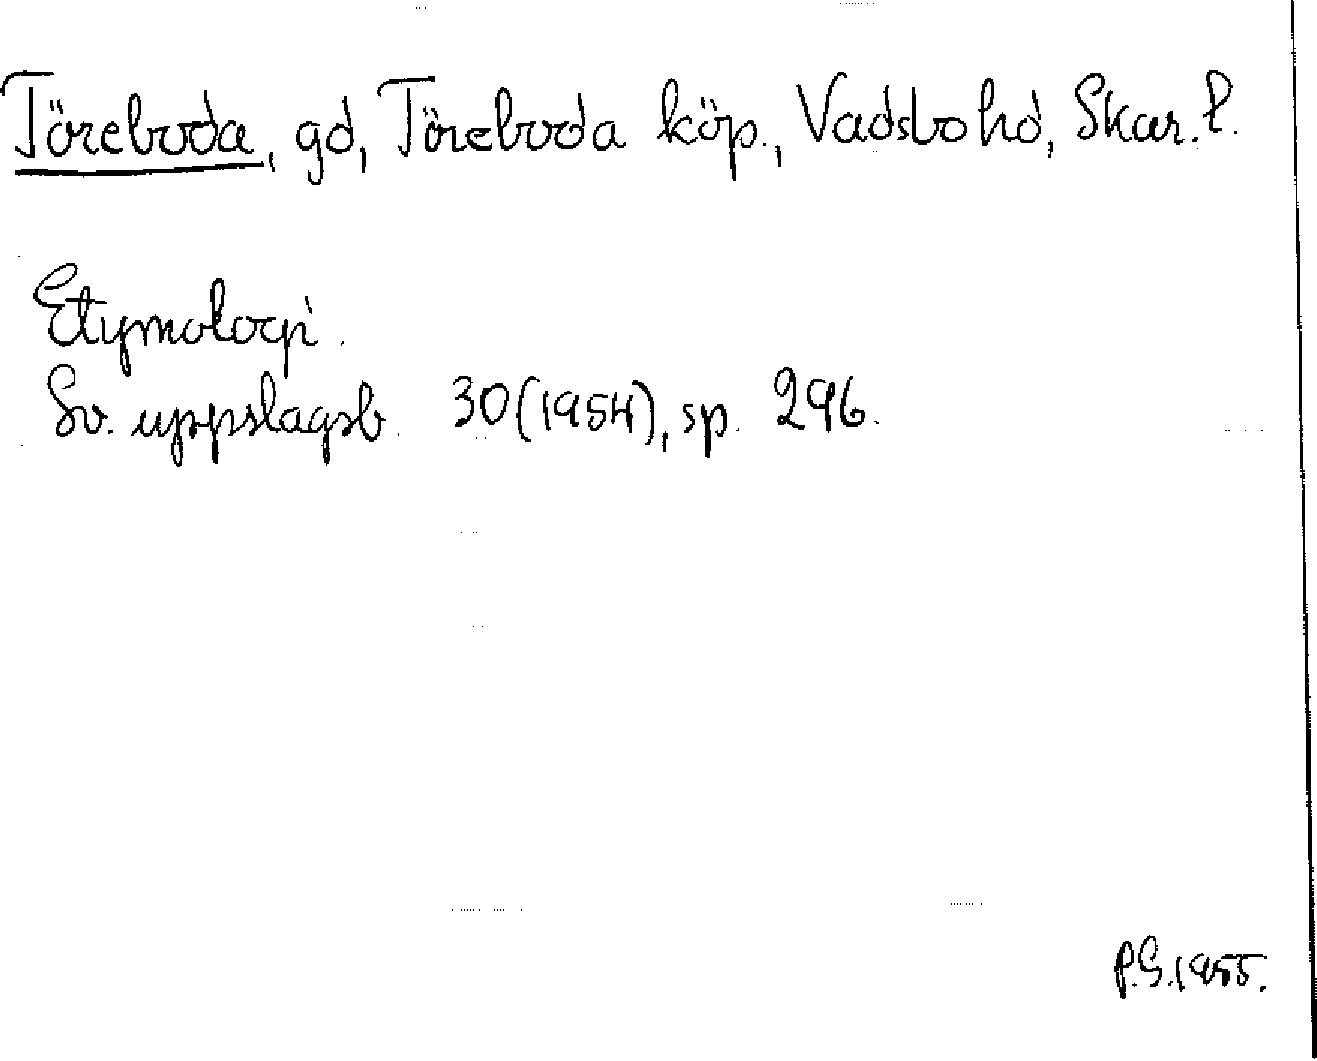 Töreboda, gd, Töreboda köp., Vadsbo hd, Skar. l.
Etymologi.
Sv. uppslagsb. 30 (1954), sp. 296.
P.G. 1955.